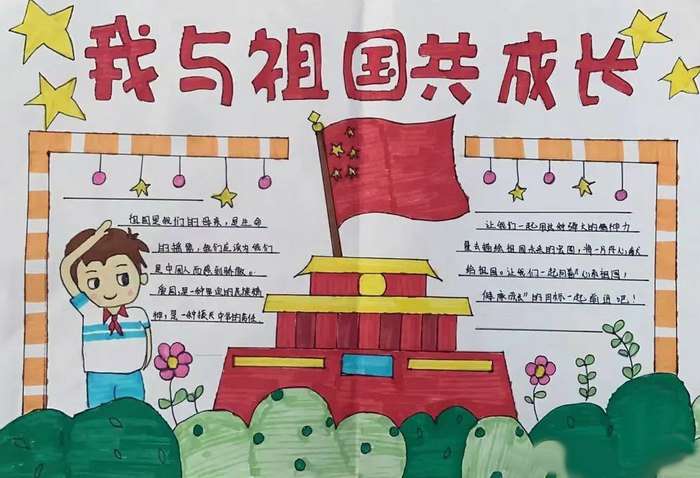 我与祖国共成长
祖国是我们的母亲，是生命
的摇篮，我们应该为我们
是中国人而感到骄傲。
爱国，是一种坚定的民族精
神，是一种振兴中华的责任
让我们一起用这种强大的精神力
量去描绘祖国未来的宏图，将一片丹心献
给祖国。让我们一起向着"心系祖国！
健康成长"的目标一起前进吧！